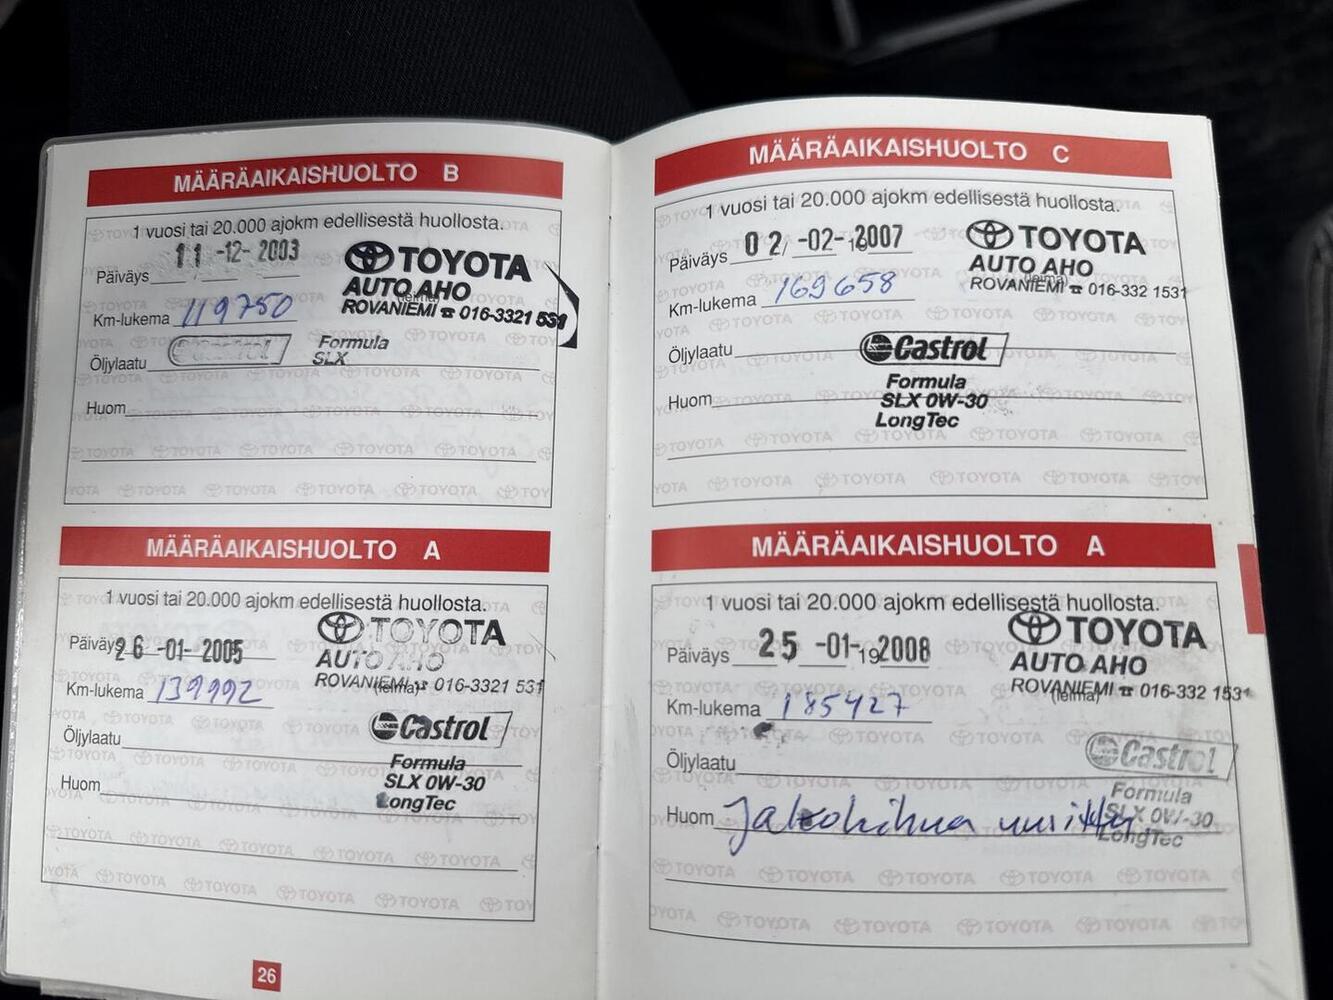 MÄÄRÄAIKAISHUOLTO B
1 vuosi tai 20.000 ajokm edellisestä huollosta.
Päiväys 11 -12- 2003
TOYOTA
AUTO AHO
(leima)
ROVANIEMI ☎ 016-3321 531
Km-lukema 119750
Öljylaatu Castrol Formula
SLX
Huom
MÄÄRÄAIKAISHUOLTO A
1 vuosi tai 20.000 ajokm edellisestä huollosta.
Päiväys 26 -01- 2005
TOYOTA
AUTO AHO
ROVANIEMI ☎ 016-3321 531
(leima)
Km-lukema 139992
Öljylaatu Castrol
Formula
SLX 0W-30
LongTec
Huom
26
MÄÄRÄAIKAISHUOLTO C
1 vuosi tai 20.000 ajokm edellisestä huollosta.
Päiväys 02 -02- 2007
TOYOTA
AUTO AHO
(leima)
ROVANIEMI ☎ 016-332 1531
Km-lukema 169658
Öljylaatu Castrol
Formula
SLX 0W-30
LongTec
Huom
MÄÄRÄAIKAISHUOLTO A
1 vuosi tai 20.000 ajokm edellisestä huollosta.
Päiväys 25 -01- 19 2008
TOYOTA
AUTO AHO
ROVANIEMI ☎ 016-332 1531
(leima)
Km-lukema 185427
Öljylaatu Castrol
Formula
SLX 0W-30
LongTec
Huom Jakohihna uusittu